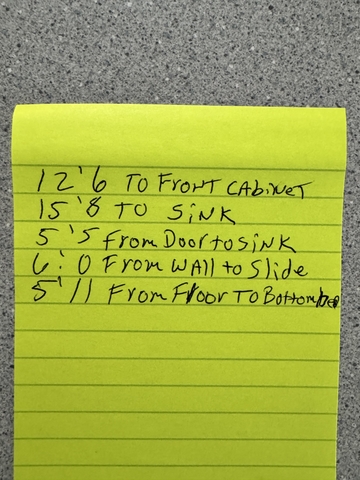 12'6 To Front Cabinet
15'8 To Sink
5'5 From Door to Sink
6'0 From Wall to Slide
5'11 From Floor To Bottom